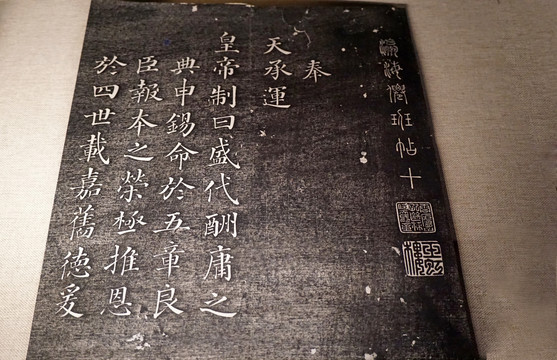 瀛海僊班帖十
奉
天承運
皇帝制曰盛代酬庸之
典申錫命於五章良
臣報本之榮極推恩
於四世載嘉舊德爰